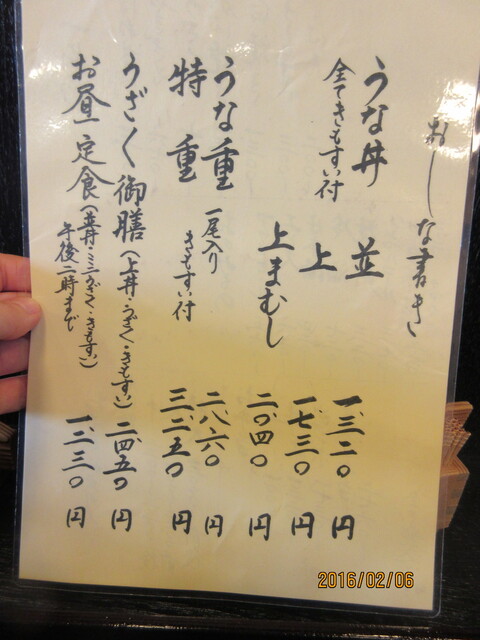 おしな書き
うな丼 並 一、三二〇円
全てきもすい付 上 一、七三〇円
上まむし 二、〇四〇円
うな重 一尾入り 二、八六〇円
特重 きもすい付 三、二五〇円
うざく御膳（上丼・うざく・きもすい） 二、四五〇円
お昼定食（並丼・ミニうざく・きもすい） 一、二三〇円
午後二時まで
2016/02/06